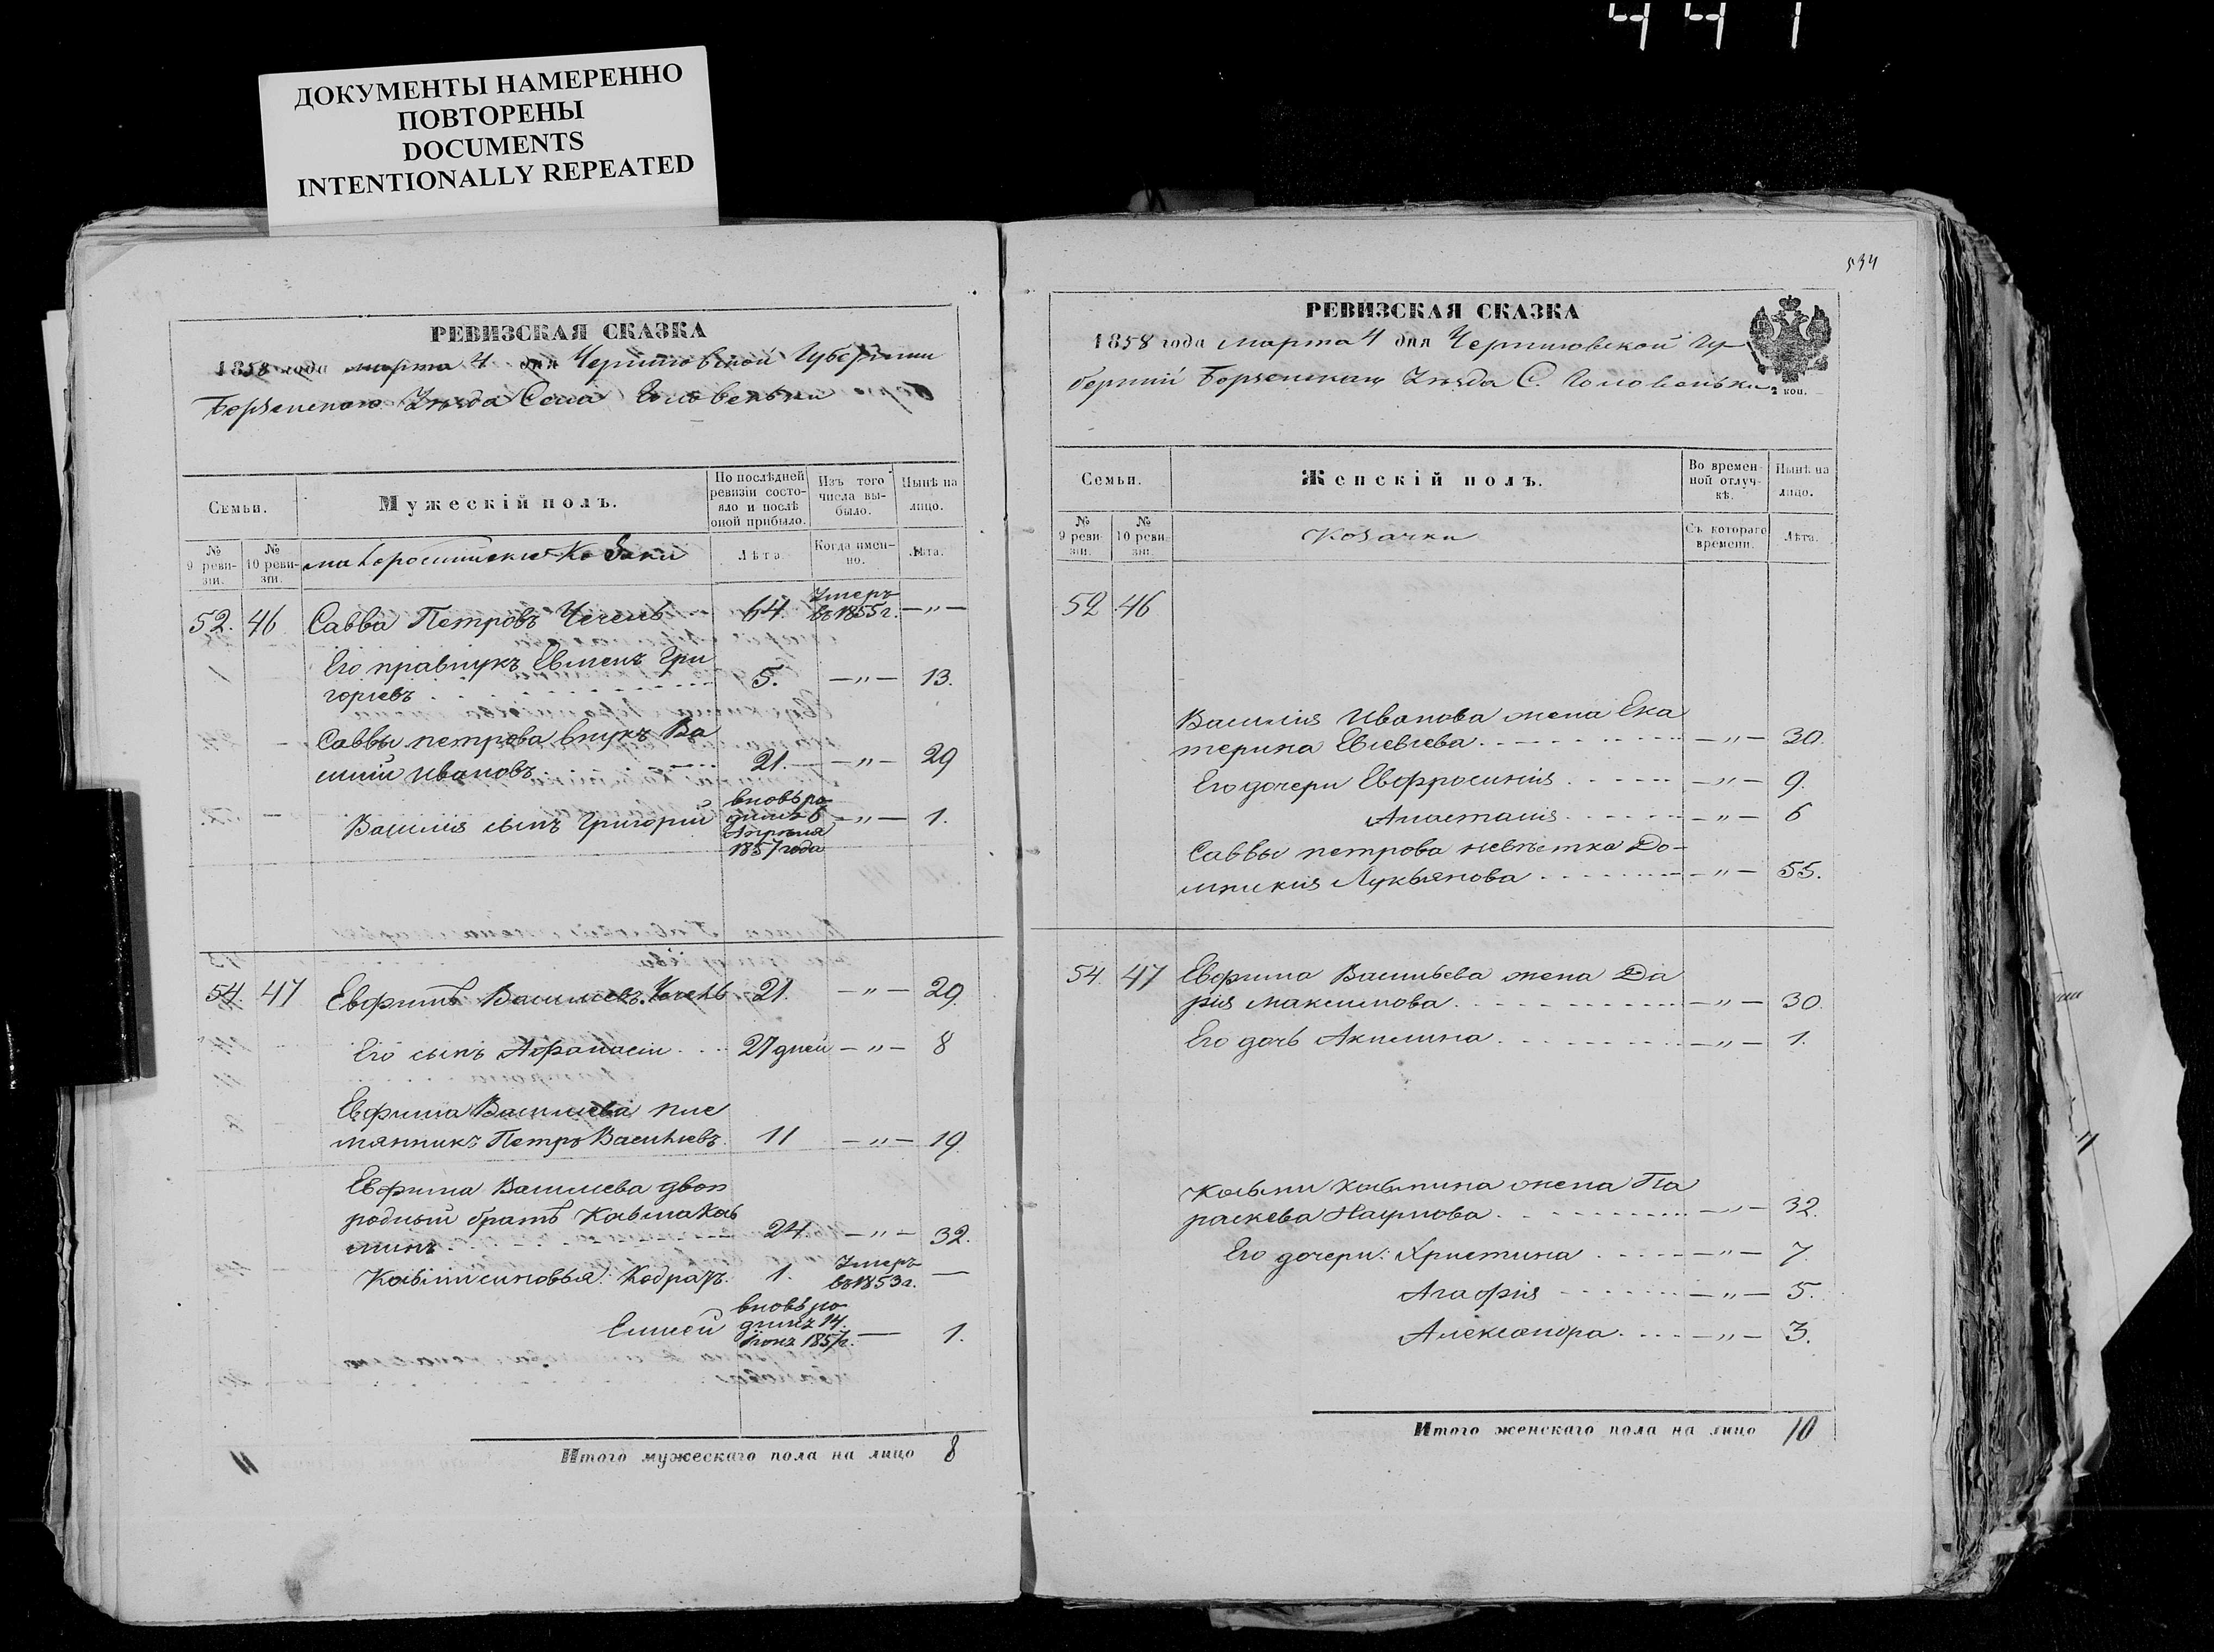 4 4 1
ДОКУМЕНТЫ НАМЕРЕННО
ПОВТОРЕНЫ
DOCUMENTS
INTENTIONALLY REPEATED
РЕВИЗСКАЯ СКАЗКА
1858 года марта 4 дня Черниговской Губернии
Борзенского Уезда Села Головеньки
Семьи.
Мужескій полъ.
По послѣдней ревизіи состояло и послѣ оной прибыло.
Изъ того числа выбыло.
Нынѣ на лицо.
№ 9 ревизіи.
№ 10 ревизіи.
малоросийские Козаки
Лѣта.
Когда именно.
Лѣта.
52. 46 Савва Петровъ Чечель 64. Умеръ въ 1855 г. — „ —
Его правнукъ Евменъ Гри
горіевъ 5. — „ — 13.
Саввы петрова внукъ Ва
силий Ивановъ 21. — „ — 29
Василия сынъ Григорий вновь родился 6 Апреля 1857 года — „ — 1.
54. 47 Евфимъ Василиевъ Чечель 21. — „ — 29.
Его сынъ Афанасій 27 дней — „ — 8
Евфима Василиева пле
мянникъ Петръ Василиевъ 11 — „ — 19
Евфима Василиева двою
родный братъ Козьма Козь
минъ 24. — „ — 32.
Козьмы сыновья: Кодратъ 1. Умеръ въ 1853 г. —
Елисей вновь родился 14. Іюня 1857 г. — 1.
Итого мужескаго пола на лицо 8
534
РЕВИЗСКАЯ СКАЗКА
1858 года марта 4 дня Черниговской Гу-
берний Борзенскаго Уезда С. Головеньки
2 коп.
Семьи.
Женскій полъ.
Во временной отлучкѣ.
Нынѣ на лицо.
№ 9 ревизіи.
№ 10 ревизіи.
Козачки
Съ котораго времени.
Лѣта.
52 46
Василия Иванова жена Ека
терина Евсевиева — „ — 30.
Его дочери Евфросиния — „ — 9.
Анастасия — „ — 6
Саввы петрова невѣстка До-
мникия Лукьянова — „ — 55.
54. 47 Евфима Васильева жена Да
рия Максимова — „ — 30.
Его дочь Акилина — „ — 1.
Козьмы Козьмина жена Па
раскева Наумова — „ — 32.
Его дочери: Христина — „ — 7.
Агафия — „ — 5.
Александра — „ — 3.
Итого женскаго пола на лицо 10